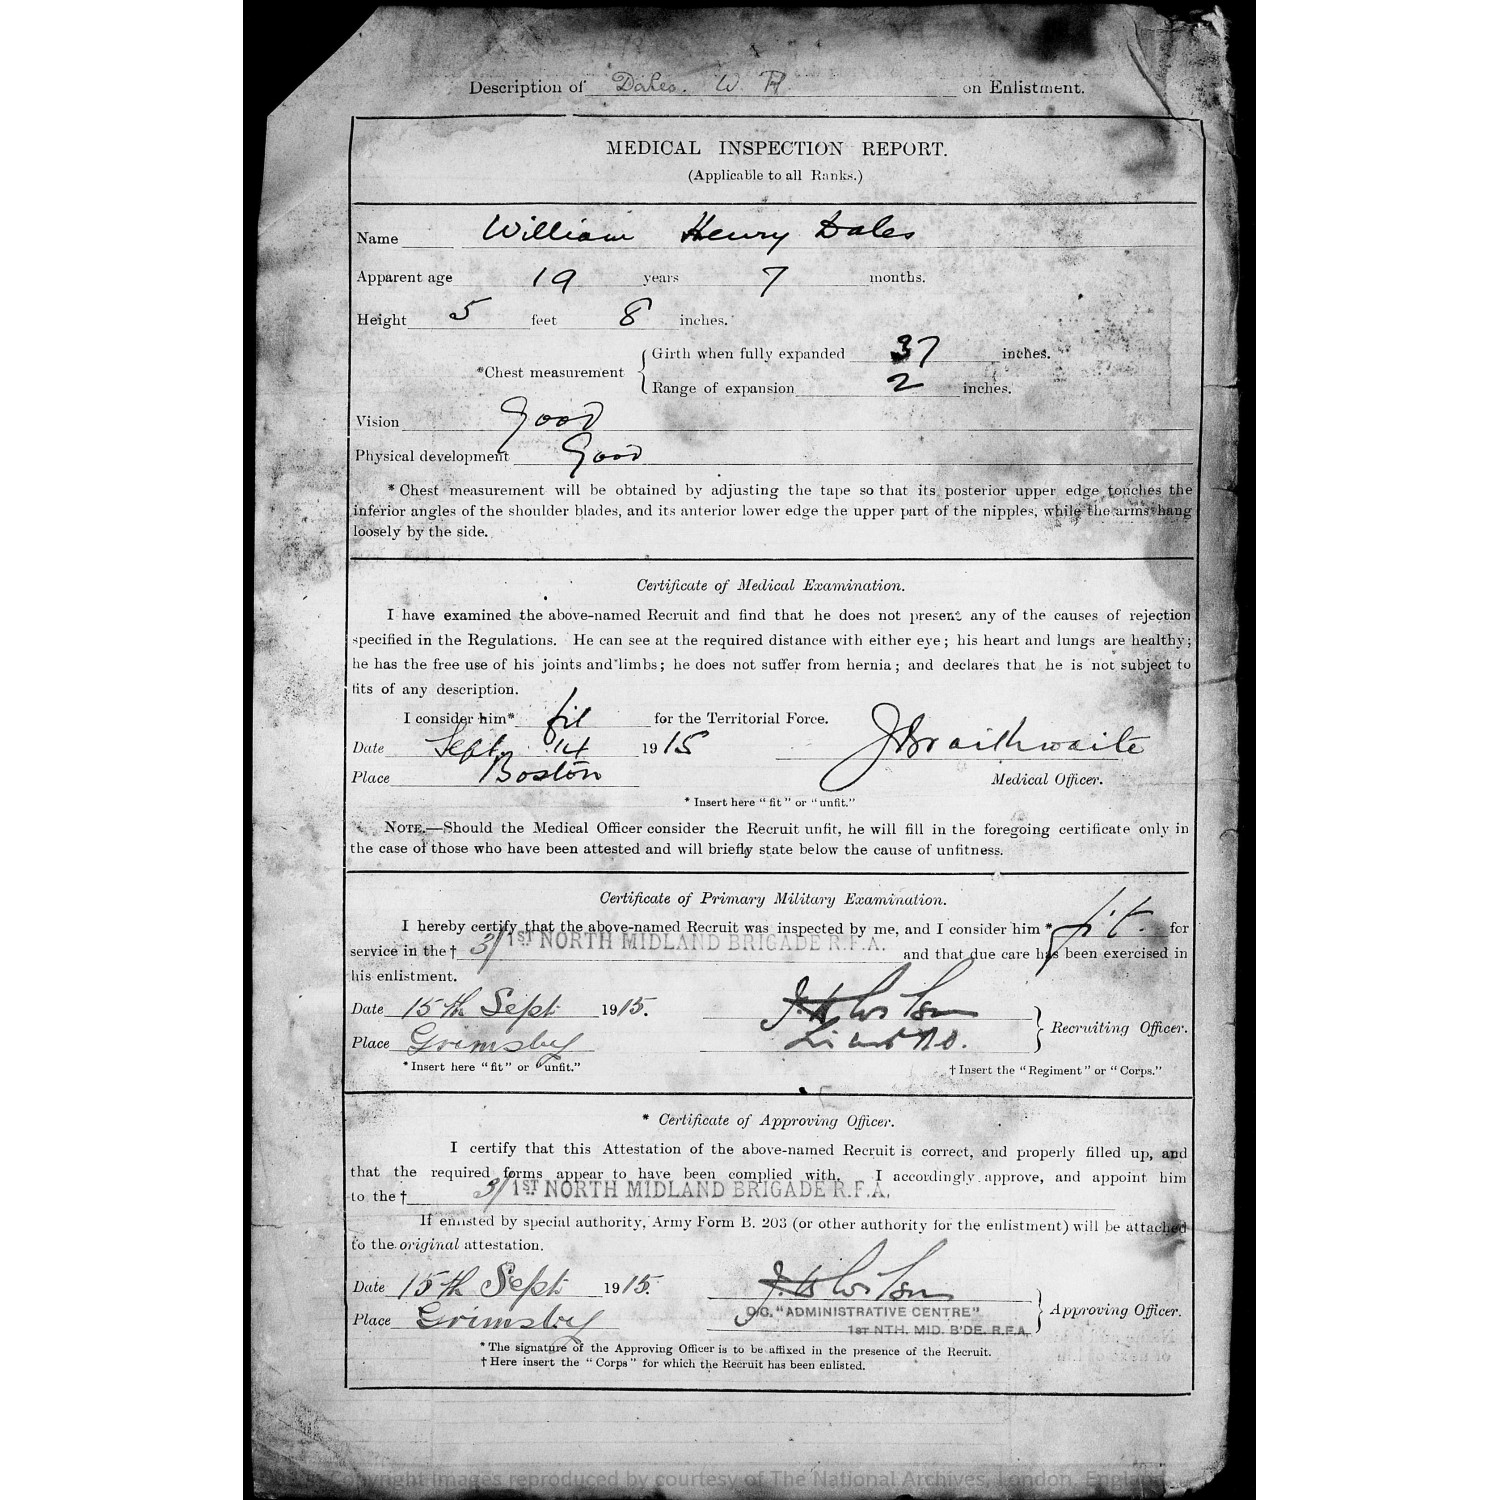 Description of Dales. W H. on Enlistment.
MEDICAL INSPECTION REPORT.
(Applicable to all Ranks.)
Name William Henry Dales
Apparent age 19 years 7 months.
Height 5 feet 8 inches.
*Chest measurement { Girth when fully expanded 37 inches.
Range of expansion 2 inches.
Vision Good
Physical development Good
* Chest measurement will be obtained by adjusting the tape so that its posterior upper edge touches the
inferior angles of the shoulder blades, and its anterior lower edge the upper part of the nipples, while the arms hang
loosely by the side.
Certificate of Medical Examination.
I have examined the above-named Recruit and find that he does not present any of the causes of rejection
specified in the Regulations. He can see at the required distance with either eye; his heart and lungs are healthy;
he has the free use of his joints and limbs; he does not suffer from hernia; and declares that he is not subject to
fits of any description.
I consider him* fit for the Territorial Force.
Date Sept. 14 1915 J Braithwaite
Place Boston Medical Officer.
* Insert here "fit" or "unfit."
NOTE.—Should the Medical Officer consider the Recruit unfit, he will fill in the foregoing certificate only in
the case of those who have been attested and will briefly state below the cause of unfitness.
Certificate of Primary Military Examination.
I hereby certify that the above-named Recruit was inspected by me, and I consider him * fit. for
service in the † 3/1ST NORTH MIDLAND BRIGADE R.F.A. and that due care has been exercised in
his enlistment.
Date 15th Sept 1915. Wilson
Place Grimsby } Recruiting Officer.
*Insert here "fit" or "unfit." † Insert the "Regiment" or "Corps."
* Certificate of Approving Officer.
I certify that this Attestation of the above-named Recruit is correct, and properly filled up, and
that the required forms appear to have been complied with. I accordingly approve, and appoint him
to the † 3/1ST NORTH MIDLAND BRIGADE R.F.A.
If enlisted by special authority, Army Form B. 203 (or other authority for the enlistment) will be attached
to the original attestation.
Date 15th Sept 1915. Wilson
Place Grimsby O/C. "ADMINISTRATIVE CENTRE" } Approving Officer.
1ST NTH. MID. B'DE. R.F.A.
* The signature of the Approving Officer is to be affixed in the presence of the Recruit.
† Here insert the "Corps" for which the Recruit has been enlisted.
Copyright images reproduced by courtesy of The National Archives, London, England